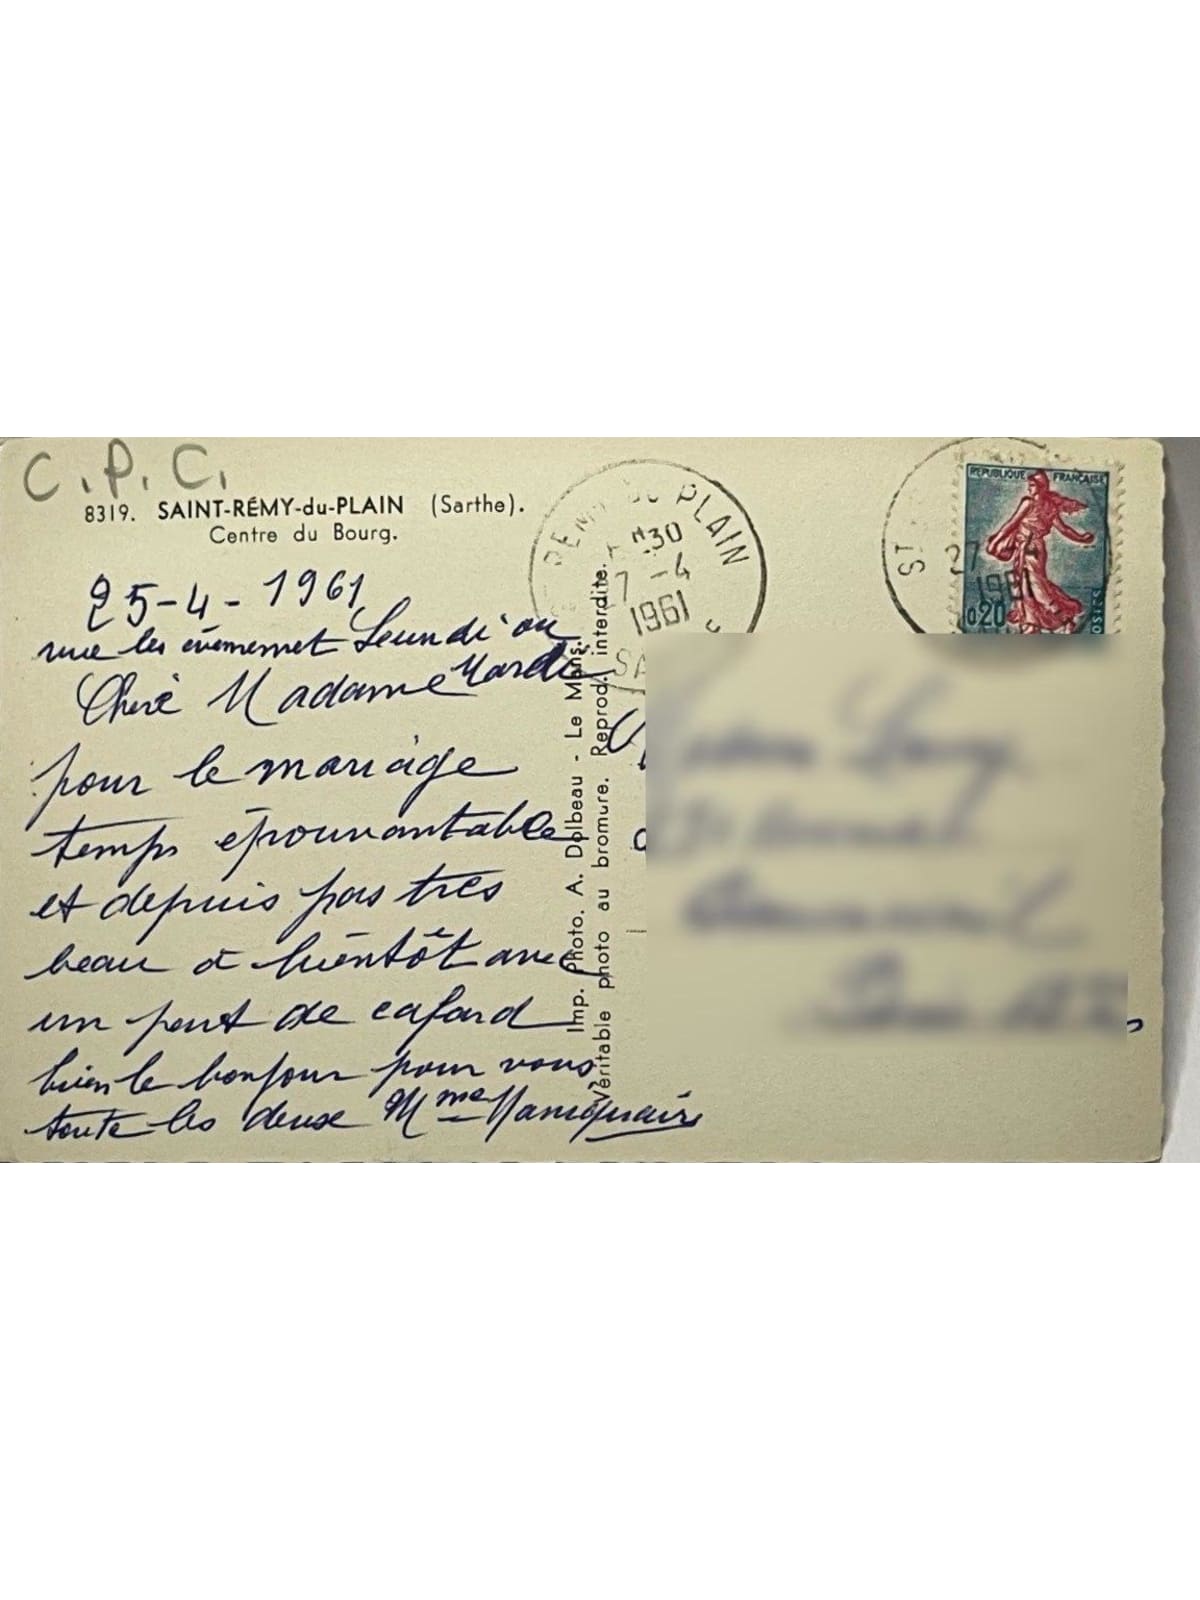 C.P.C.
8319. SAINT-RÉMY-du-PLAIN (Sarthe).
Centre du Bourg.
25-4-1961
vue les évènemet Leundi ou
Mardi
Cheré Madame
pour le mariage
temps épouvantable
et depuis pas tres
beau à bientôt avec
un peut de cafard
bien le bonjour pour vous
toute les deux Mme
Imp. Photo. A. Dolbeau - Le Mans.
Véritable photo au bromure. Reprod. interdite.
DU PLAIN
30
27 -4
1961
SA
RÉPUBLIQUE FRANÇAISE
0,20
POSTES
ST
27
1961